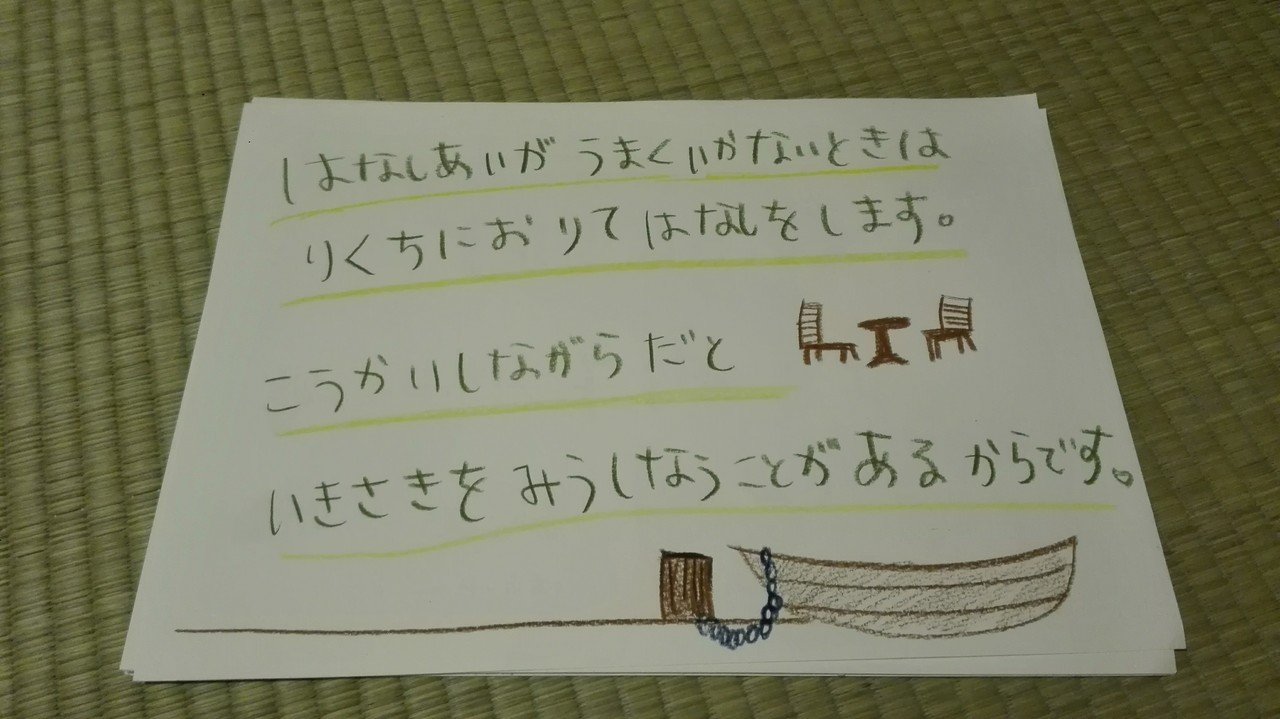 はなしあいが うまくいかないときは
りくちにおりてはなしをします。
こうかいしながらだと
いきさきをみうしなうことがあるからです。